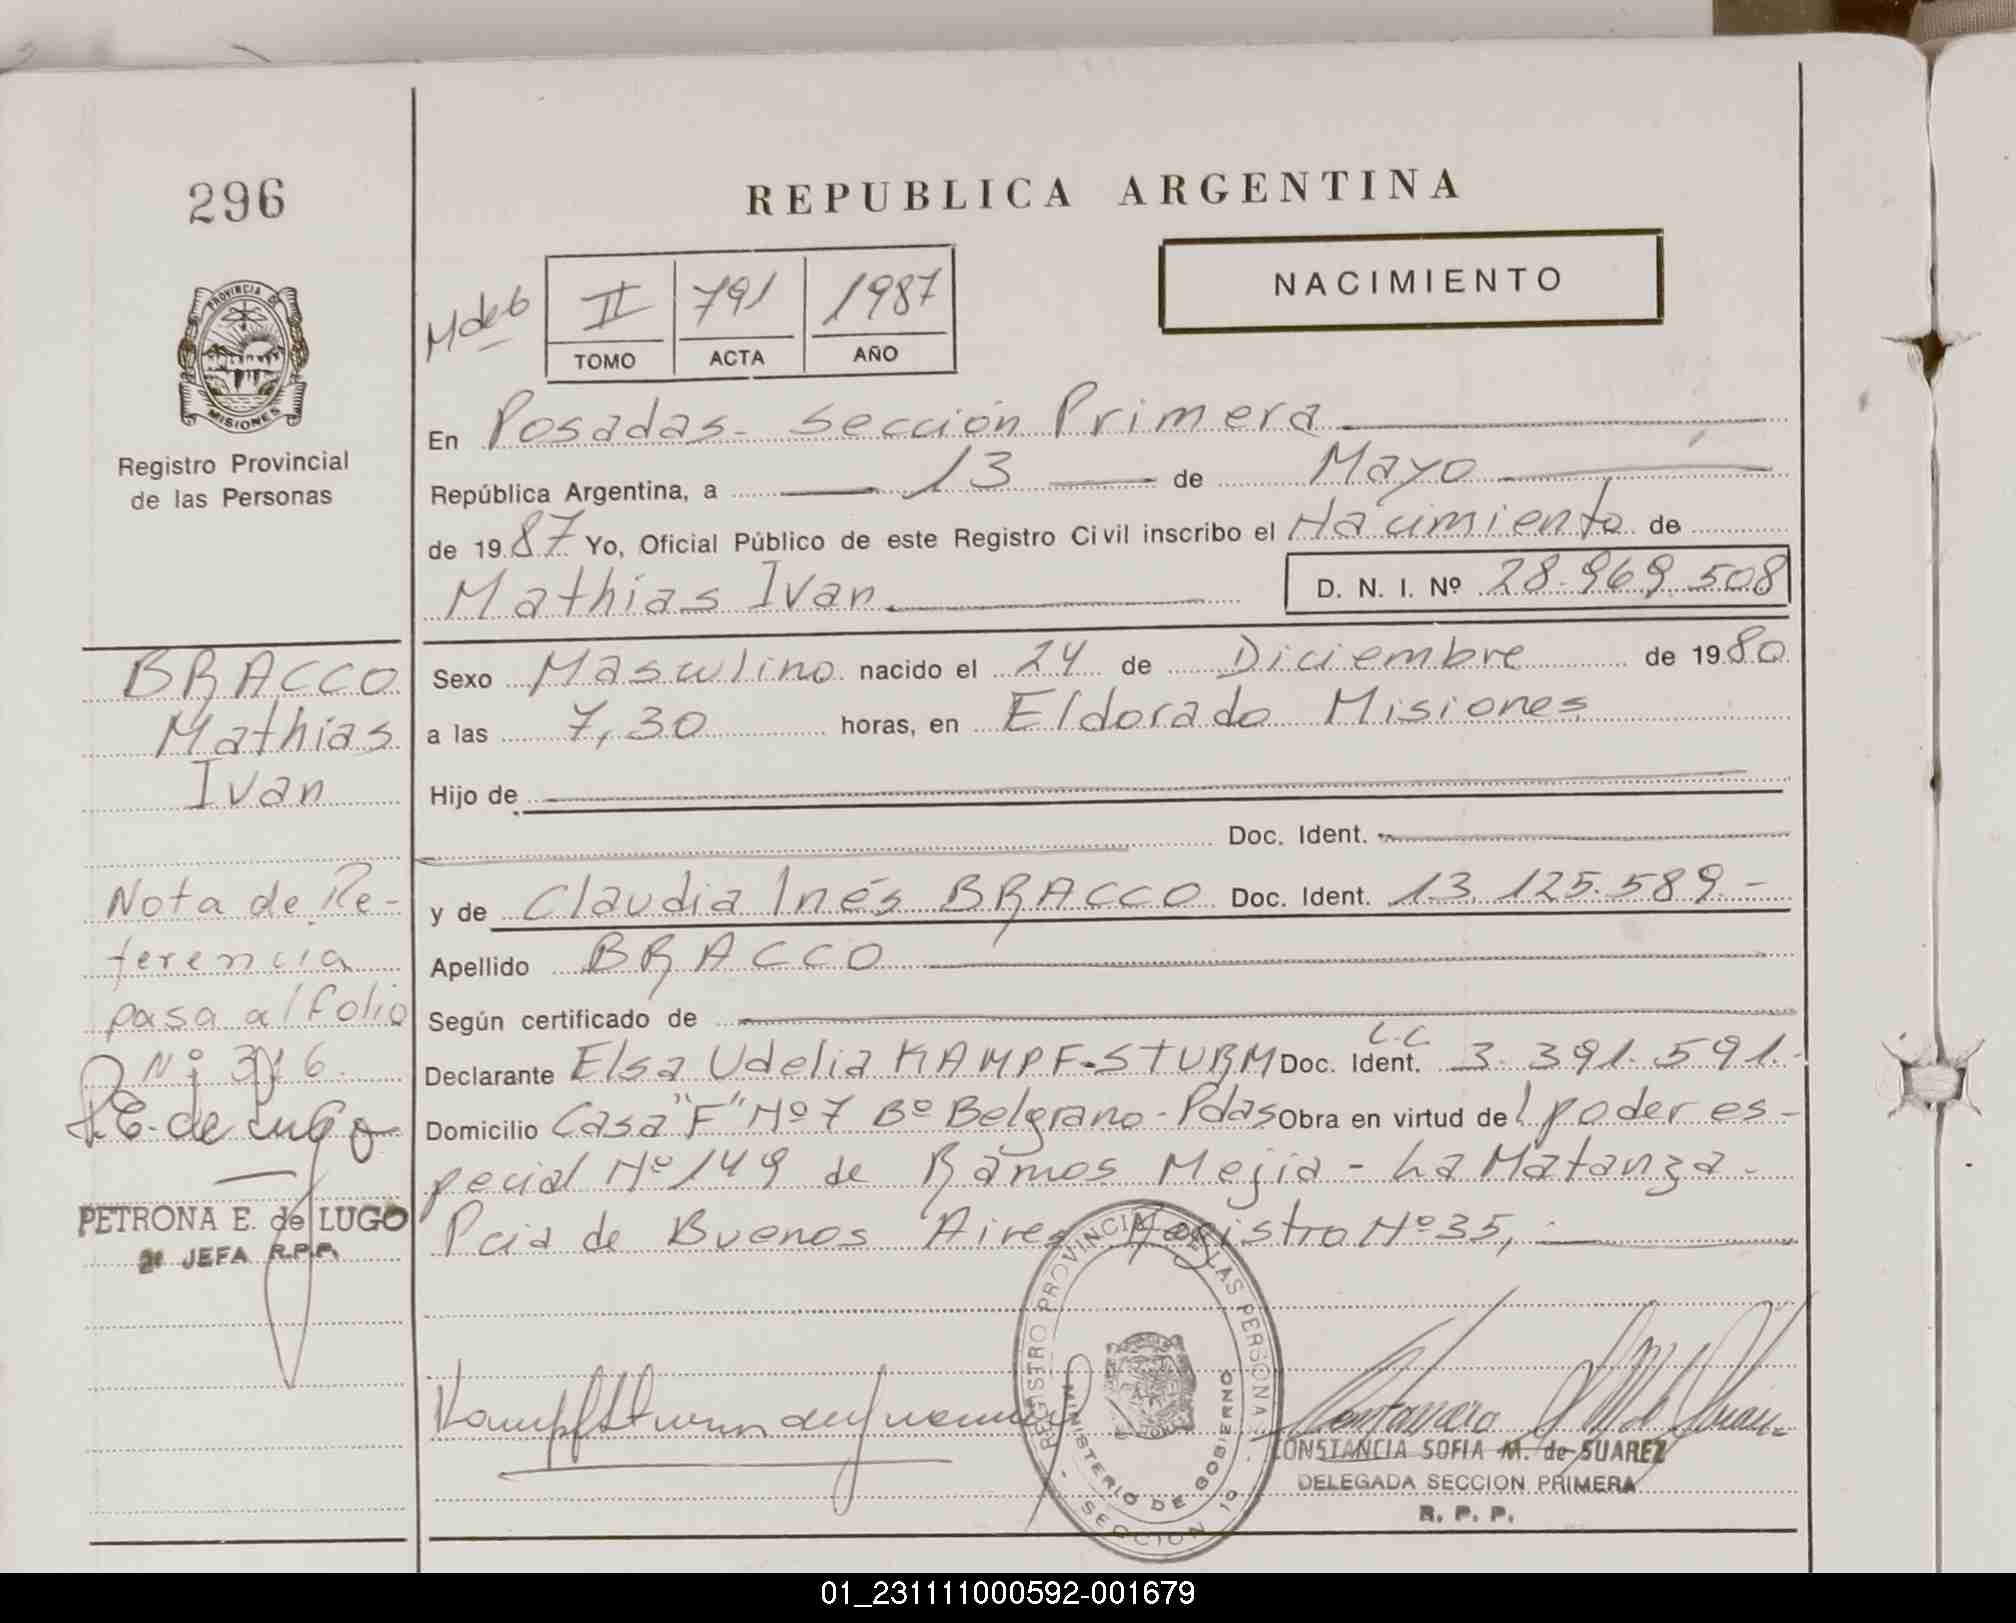 296
REPUBLICA ARGENTINA
NACIMIENTO
M de 6
II 791 1987
TOMO ACTA AÑO
PROVINCIA DE
MISIONES
Registro Provincial
de las Personas
En Posadas - Sección Primera
República Argentina, a 13 de Mayo
de 1987 Yo, Oficial Público de este Registro Civil inscribo el Nacimiento de
Mathias Ivan D. N. I. Nº 28.969.508
BRACCO
Mathias
Ivan
Sexo Masculino nacido el 24 de Diciembre de 1980
a las 7,30 horas, en Eldorado Misiones
Hijo de
Doc. Ident.
y de Claudia Inés BRACCO Doc. Ident. 13.125.589.-
Apellido BRACCO
Según certificado de
L.C.
Declarante Elsa Udelia KAMPF-STURM Doc. Ident. 3.391.591.-
Domicilio Casa "F" Nº 7 Bº Belgrano - Pdas Obra en virtud del poder es-
pecial Nº 149 de Ramos Mejia - La Matanza -
Pcia de Buenos Aires Registro Nº 35,
Nota de Re-
ferencia
pasa al folio
Nº 316
P.E. de Lugo
PETRONA E. de LUGO
JEFA R.P.P.
REGISTRO PROVINCIAL DE LAS PERSONAS
MINISTERIO DE GOBIERNO
SECCION 1º
CONSTANCIA SOFIA M. de SUAREZ
DELEGADA SECCION PRIMERA
R. P. P.
01_231111000592-001679